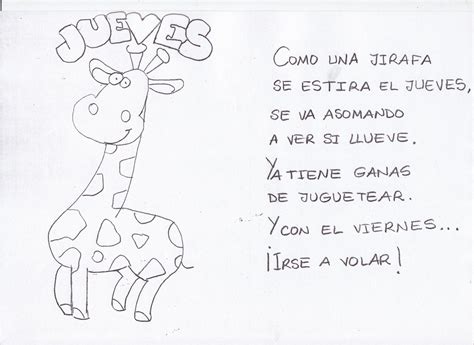 JUEVES
COMO UNA JIRAFA
SE ESTIRA EL JUEVES,
SE VA ASOMANDO
A VER SI LLUEVE.
YA TIENE GANAS
DE JUGUETEAR.
Y CON EL VIERNES...
¡IRSE A VOLAR!